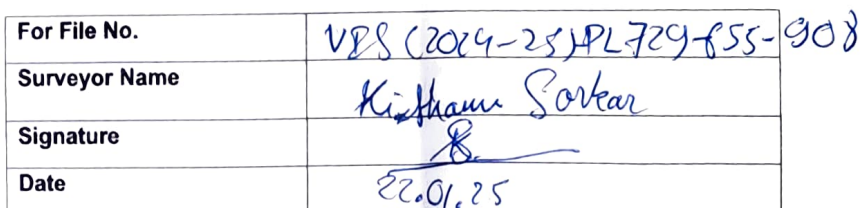 For File No. VIS (2024-25)-PL729-655-908
Surveyor Name Sarkar
Signature
Date 22.01.25